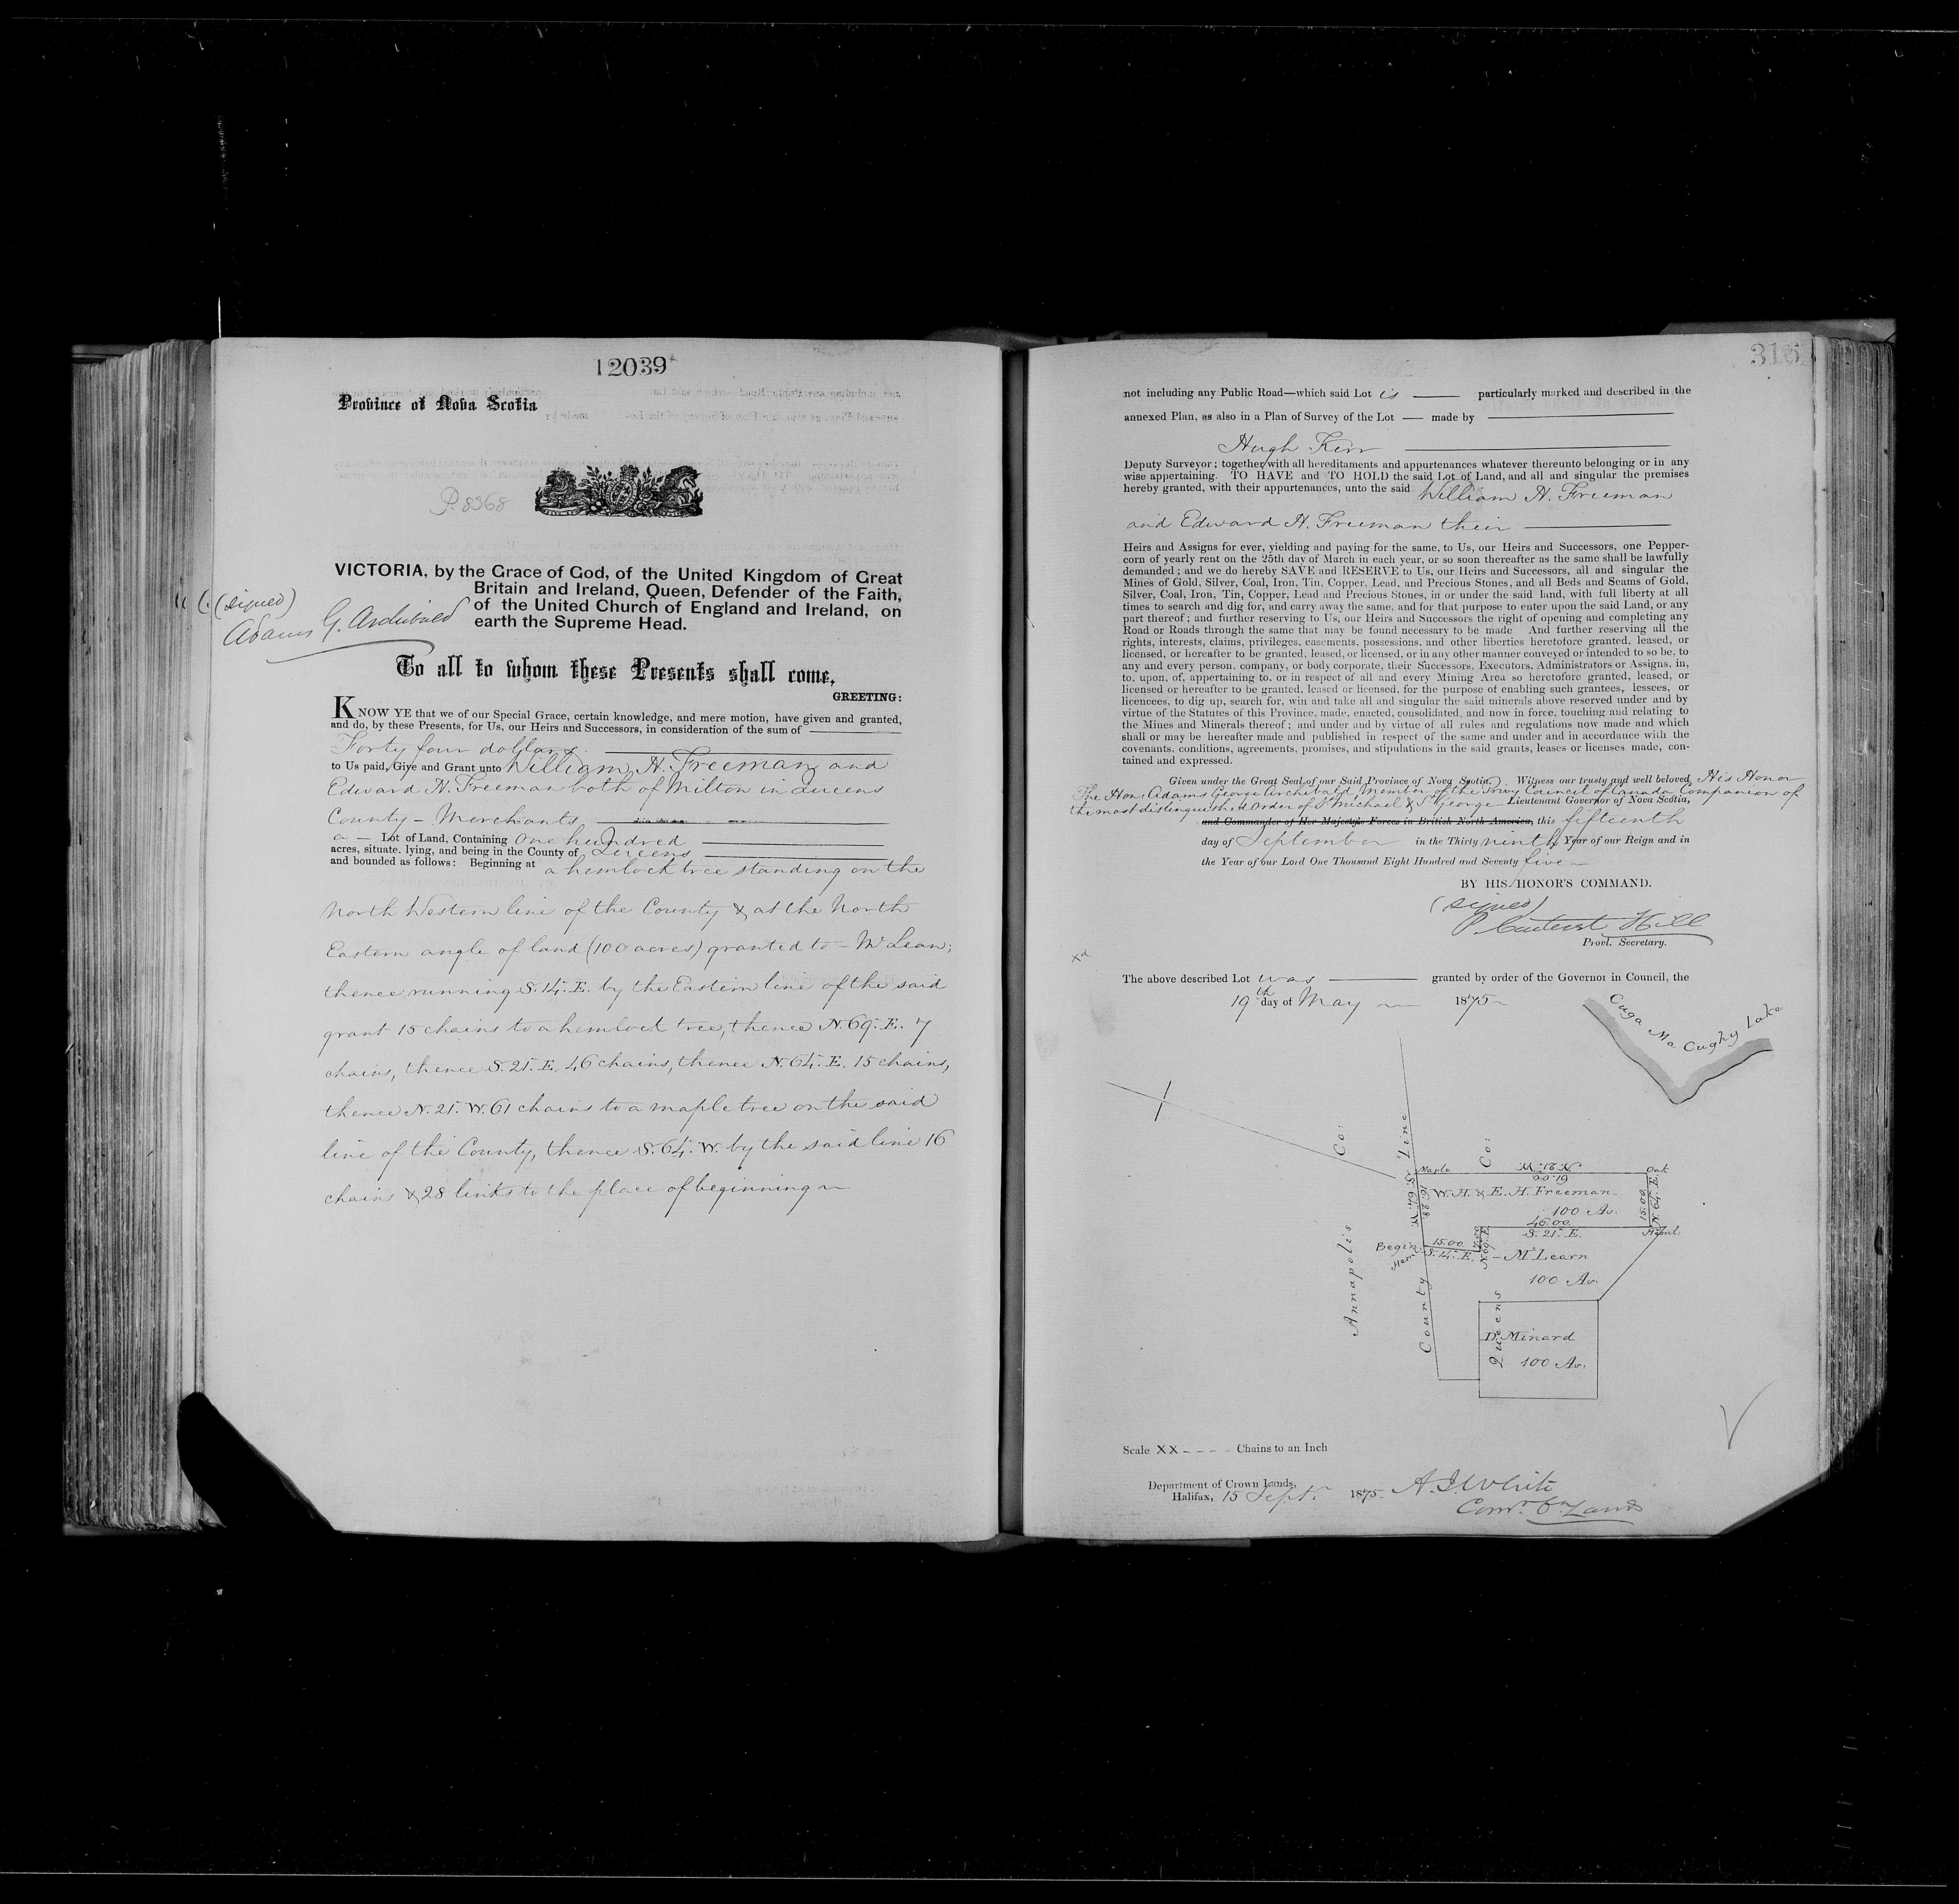 12039
Province of Nova Scotia
P. 8368
VICTORIA, by the Grace of God, of the United Kingdom of Great
Britain and Ireland, Queen, Defender of the Faith,
of the United Church of England and Ireland, on
earth the Supreme Head.
(signed)
Adams G. Archibald
To all to whom these Presents shall come,
GREETING:
KNOW YE that we of our Special Grace, certain knowledge, and mere motion, have given and granted,
and do, by these Presents, for Us, our Heirs and Successors, in consideration of the sum of
Forty four dollars
to Us paid, Give and Grant unto William H. Freeman and
Edward H. Freeman both of Milton in Queens
County - Merchants
a - Lot of Land, Containing one hundred
acres, situate, lying, and being in the County of Queens
and bounded as follows: Beginning at a hemlock tree standing on the
North Western line of the County & at the North
Eastern angle of land (100 acres) granted to - McLean;
thence running S. 14°. E. by the Eastern line of the said
grant 15 chains to a hemlock tree, thence N. 69°. E. 7
chains, thence S. 21°. E. 46 chains, thence N. 64°. E. 15 chains,
thence N. 21°. W. 61 chains to a maple tree on the said
line of the County, thence S. 64°. W. by the said line 16
chains & 28 links to the place of beginning
316
not including any Public Road—which said Lot is particularly marked and described in the
annexed Plan, as also in a Plan of Survey of the Lot made by
Hugh Kerr
Deputy Surveyor; together with all hereditaments and appurtenances whatever thereunto belonging or in any
wise appertaining. TO HAVE and TO HOLD the said Lot of Land, and all and singular the premises
hereby granted, with their appurtenances, unto the said William H. Freeman
and Edward H. Freeman their
Heirs and Assigns for ever, yielding and paying for the same, to Us, our Heirs and Successors, one Pepper-
corn of yearly rent on the 25th day of March in each year, or so soon thereafter as the same shall be lawfully
demanded; and we do hereby SAVE and RESERVE to Us, our Heirs and Successors, all and singular the
Mines of Gold, Silver, Coal, Iron, Tin, Copper, Lead, and Precious Stones, and all Beds and Seams of Gold,
Silver, Coal, Iron, Tin, Copper, Lead and Precious Stones, in or under the said land, with full liberty at all
times to search and dig for, and carry away the same, and for that purpose to enter upon the said Land, or any
part thereof; and further reserving to Us, our Heirs and Successors the right of opening and completing any
Road or Roads through the same that may be found necessary to be made And further reserving all the
rights, interests, claims, privileges, easements, possessions, and other liberties heretofore granted, leased, or
licensed, or hereafter to be granted, leased, or licensed, or in any other manner conveyed or intended to so be, to
any and every person, company, or body corporate, their Successors, Executors, Administrators or Assigns, in,
to, upon, of, appertaining to, or in respect of all and every Mining Area so heretofore granted, leased, or
licensed or hereafter to be granted, leased or licensed, for the purpose of enabling such grantees, lessees, or
licencees, to dig up, search for, win and take all and singular the said minerals above reserved under and by
virtue of the Statutes of this Province, made, enacted, consolidated, and now in force, touching and relating to
the Mines and Minerals thereof; and under and by virtue of all rules and regulations now made and which
shall or may be hereafter made and published in respect of the same and under and in accordance with the
covenants, conditions, agreements, promises, and stipulations in the said grants, leases or licenses made, con-
tained and expressed.
Given under the Great Seal of our Said Province of Nova Scotia. Witness our trusty and well beloved, His Honor
The Hon: Adams George Archibald, Member of the Privy Council of Canada Companion of
the most distinguished Order of St Michael & St George. Lieutenant Governor of Nova Scotia,
and Commander of Her Majesty's Forces in British North America, this fifteenth
day of September in the Thirty ninth Year of our Reign and in
the Year of our Lord One Thousand Eight Hundred and Seventy five
BY HIS HONOR'S COMMAND.
(signed)
P. Carteret Hill
Provl. Secretary.
xd
The above described Lot was granted by order of the Governor in Council, the
19th day of May 1875
Cuga Ma Cughy Lake
Annapolis Co:
County Line
Queens Co:
Maple
N. 21°. W.
61.00
Oak
S. 64°. W.
16.28
W. H. & E. H. Freeman
100 Ac.
15.00
N. 64°. E.
46.00
S. 21°. E.
Heml:
Begin
Heml:
15.00
S. 14°. E.
7.00
N. 69°. E.
- McLearn
100 Ac.
D. Minard
100 Ac.
Scale XX Chains to an Inch
Department of Crown Lands,
Halifax, 15 Sept. 1875.
A. J. White
Comr. Cn. Lands